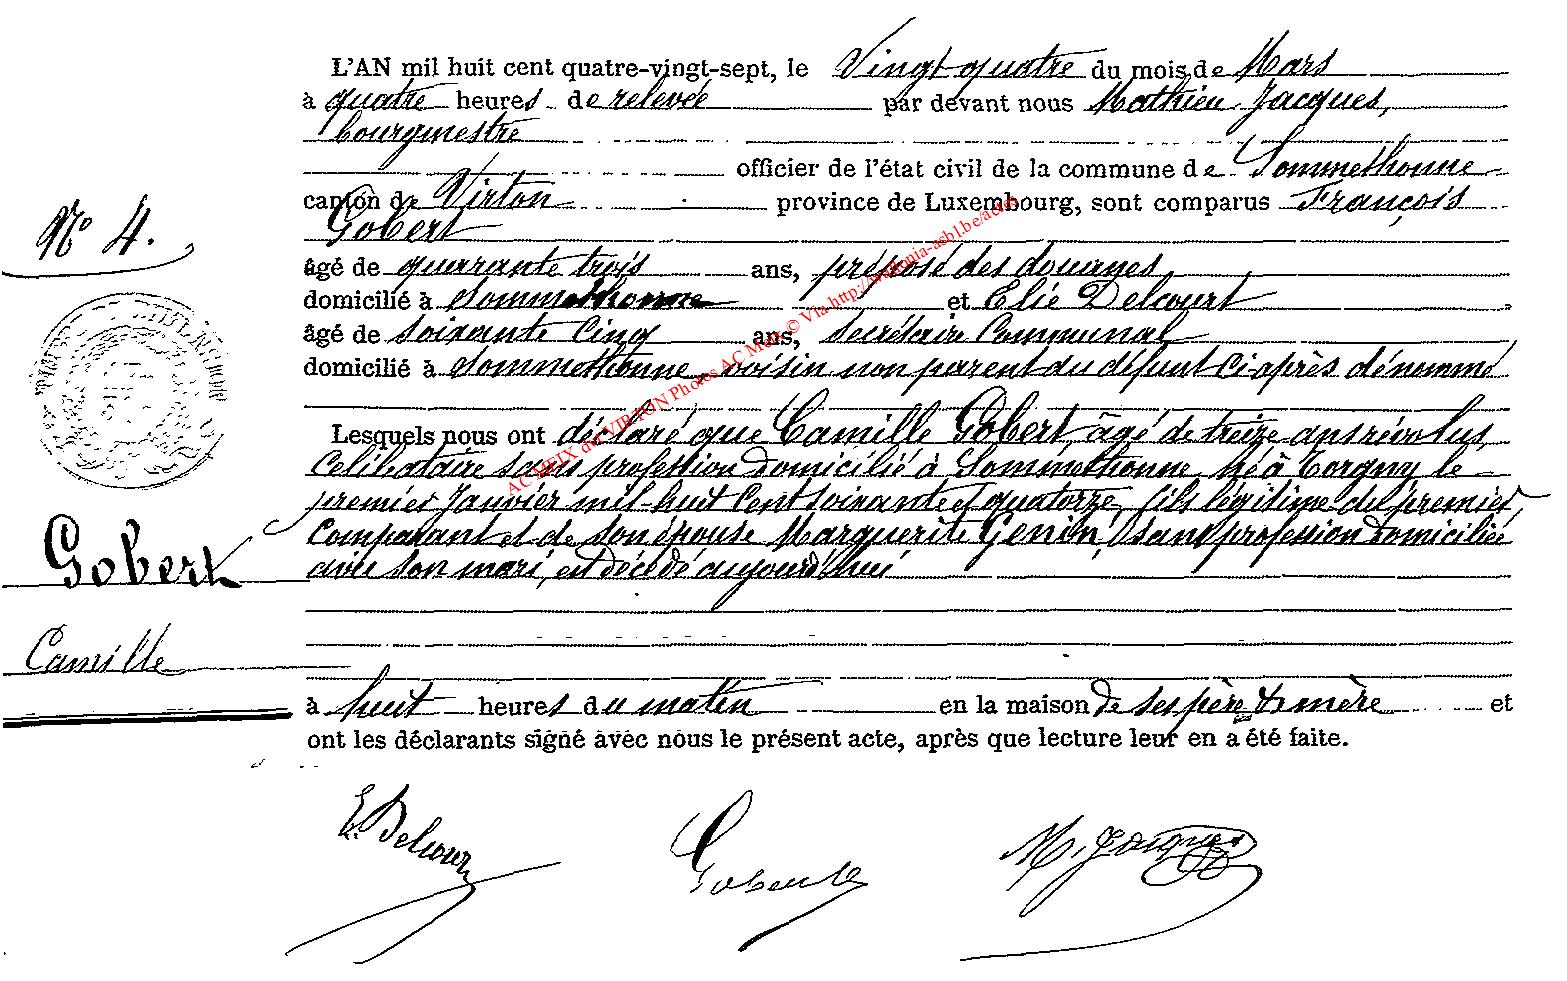 L'AN mil huit cent quatre-vingt-sept, le Vingt quatre du mois de Mars
à quatre heures de relevée par devant nous Mathieu Jacques,
bourgmestre
officier de l'état civil de la commune de Sommethonne
canton de Virton province de Luxembourg, sont comparus François
Gobert
âgé de quarante trois ans, préposé des douanes
domicilié à Sommethonne et Elie Delcourt
âgé de soixante cinq ans, secrétaire Communal
domicilié à Sommethonne, voisin non parent du défunt ci-après dénommé
Lesquels nous ont déclaré que Camille Gobert, âgé de treize ans révolus
Celibataire sans profession domicilié à Sommethonne, né à Torgny le
premier Janvier mil-huit Cent soixante et quatorze, fils légitime du premier
Comparant et de son épouse Marguerite Genin, sans profession domiciliée
avec son mari, est décédé aujourd'hui
à huit heures du matin en la maison de ses père & mère et
ont les déclarants signé avec nous le présent acte, après que lecture leur en a été faite.
N° 4.
Gobert
Camille
E. Delcourt
Gobert
M. Jacques
AC MEIX dvt VIRTON Photos AC Meix © Via http://wallonia-asbl.be/actes